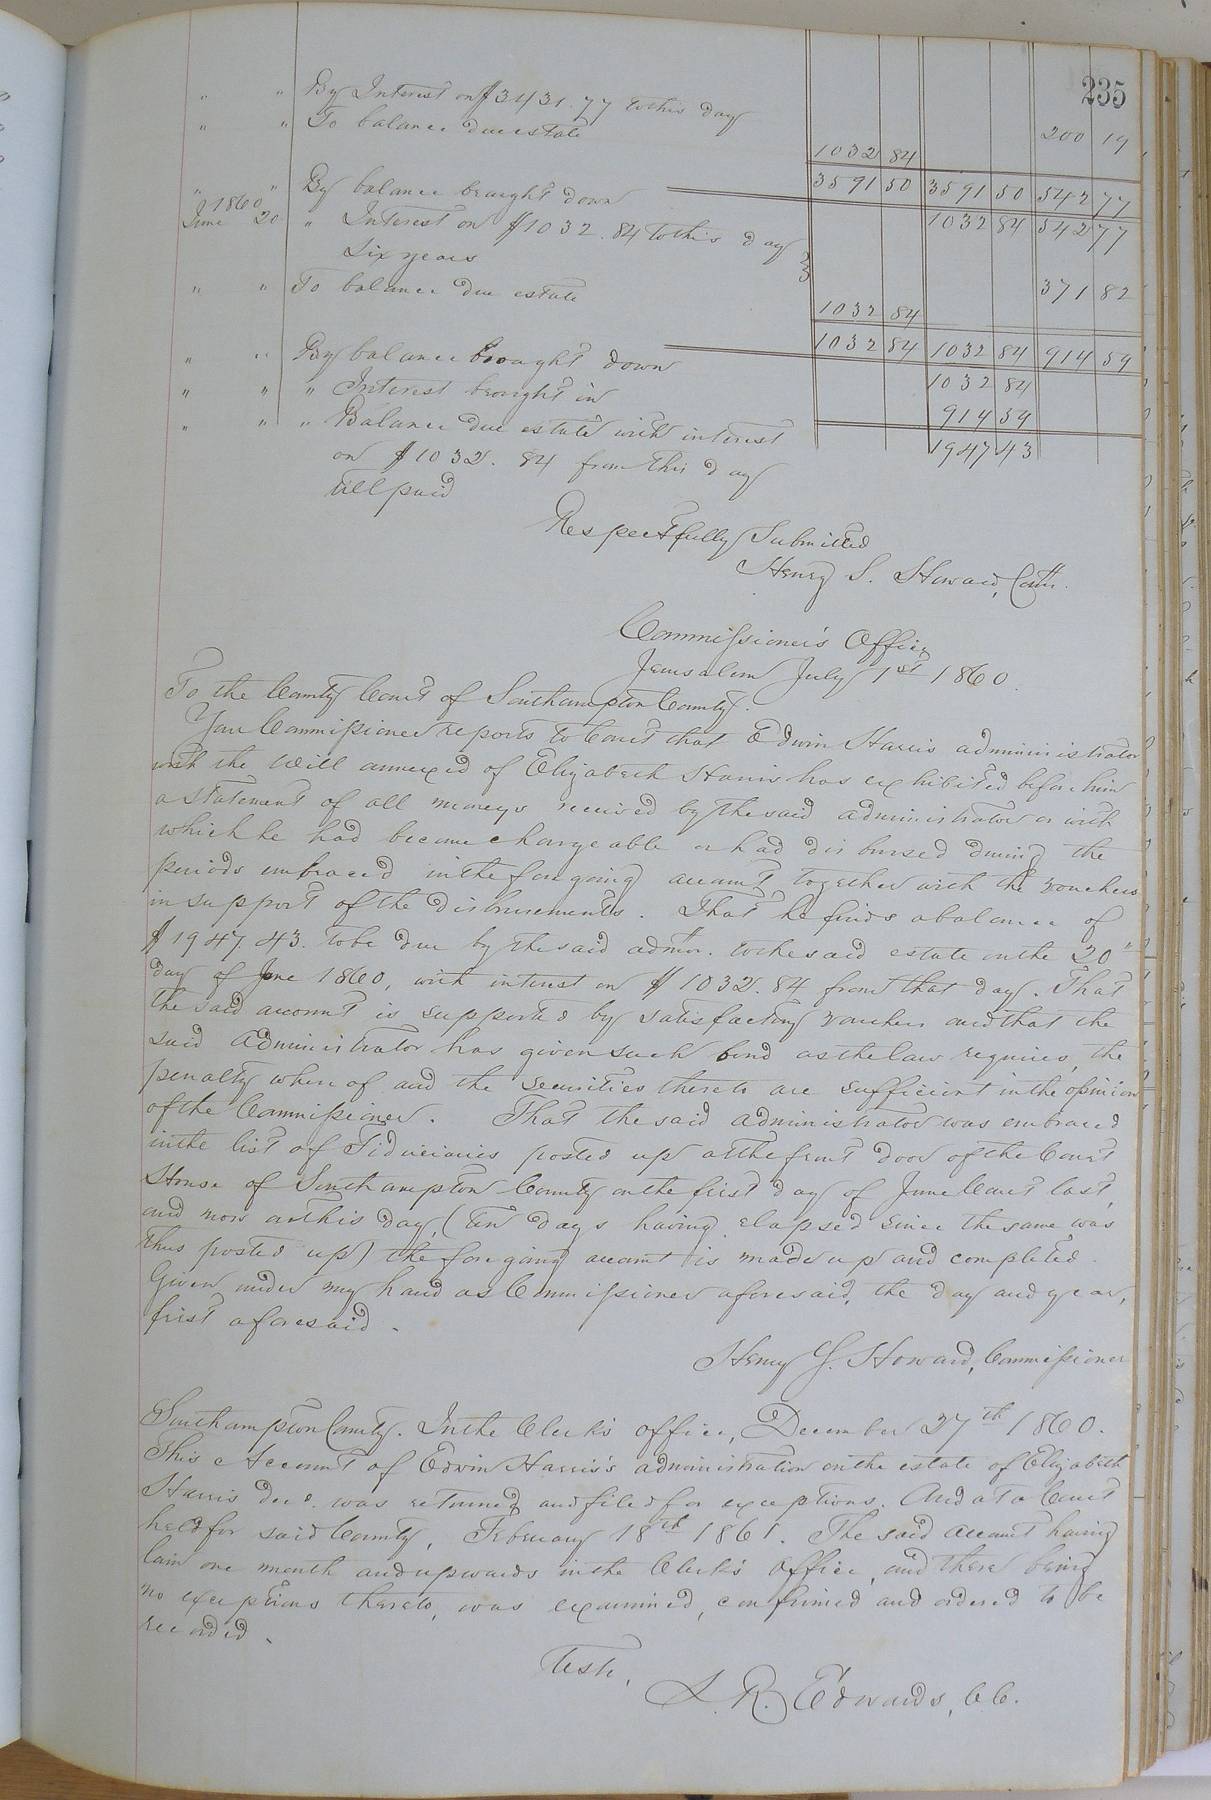 235
" " By Interest on $3431.77 to this day 200 19
" " To balance due estate 1032 84
3591 50 3591 50 542 77
" " By balance brought down 1032 84 542 77
1860
June 20 " Interest on $1032.84 to this day
six years 371 82
" " To balance due estate 1032 84
1032 84 1032 84 914 59
" " By balance brought down 1032 84
" " " Interest brought in 914 59
" " " Balance due estate with interest 1947 43
on $1032.84 from this day
till paid
Respectfully Submitted
Henry S. Howard, Comr.
Commissioner's Office
Jerusalem July 1st 1860.
To the County Court of Southampton County.
Your Commissioner reports to Court that Edwin Harris administrator
with the Will annexed of Elizabeth Harris has exhibited before him
a statement of all moneys received by the said administrator or with
which he had become chargeable or had disbursed during the
periods embraced in the foregoing account, together with the vouchers
in support of the disbursements. That he finds a balance of
$1947.43. to be due by the said admor. to the said estate on the 20th
day of June 1860, with interest on $1032.84 from that day. That
the said account is supported by satisfactory vouchers and that the
said administrator has given such bond as the law requires, the
penalty whereof and the securities thereto are sufficient in the opinion
of the Commissioner. That the said administrator was embraced
in the list of Fiduciaries posted up at the front door of the Court
House of Southampton County on the first day of June Court last,
and now on this day, (ten days having elapsed since the same was
thus posted up) the foregoing account is made up and completed.
Given under my hand as Commissioner aforesaid, the day and year,
first aforesaid.
Henry S. Howard, Commissioner
Southampton County. In the Clerk's office, December 27th 1860.
This Account of Edwin Harris's administration on the estate of Elizabeth
Harris decd. was returned and filed for exceptions. And at a Court
held for said County, February 18th 1861. The said account having
lain one month and upwards in the Clerk's office, and there being
no exceptions thereto, was examined, confirmed and ordered to be
recorded.
Teste,
L. R. Edwards, C.C.